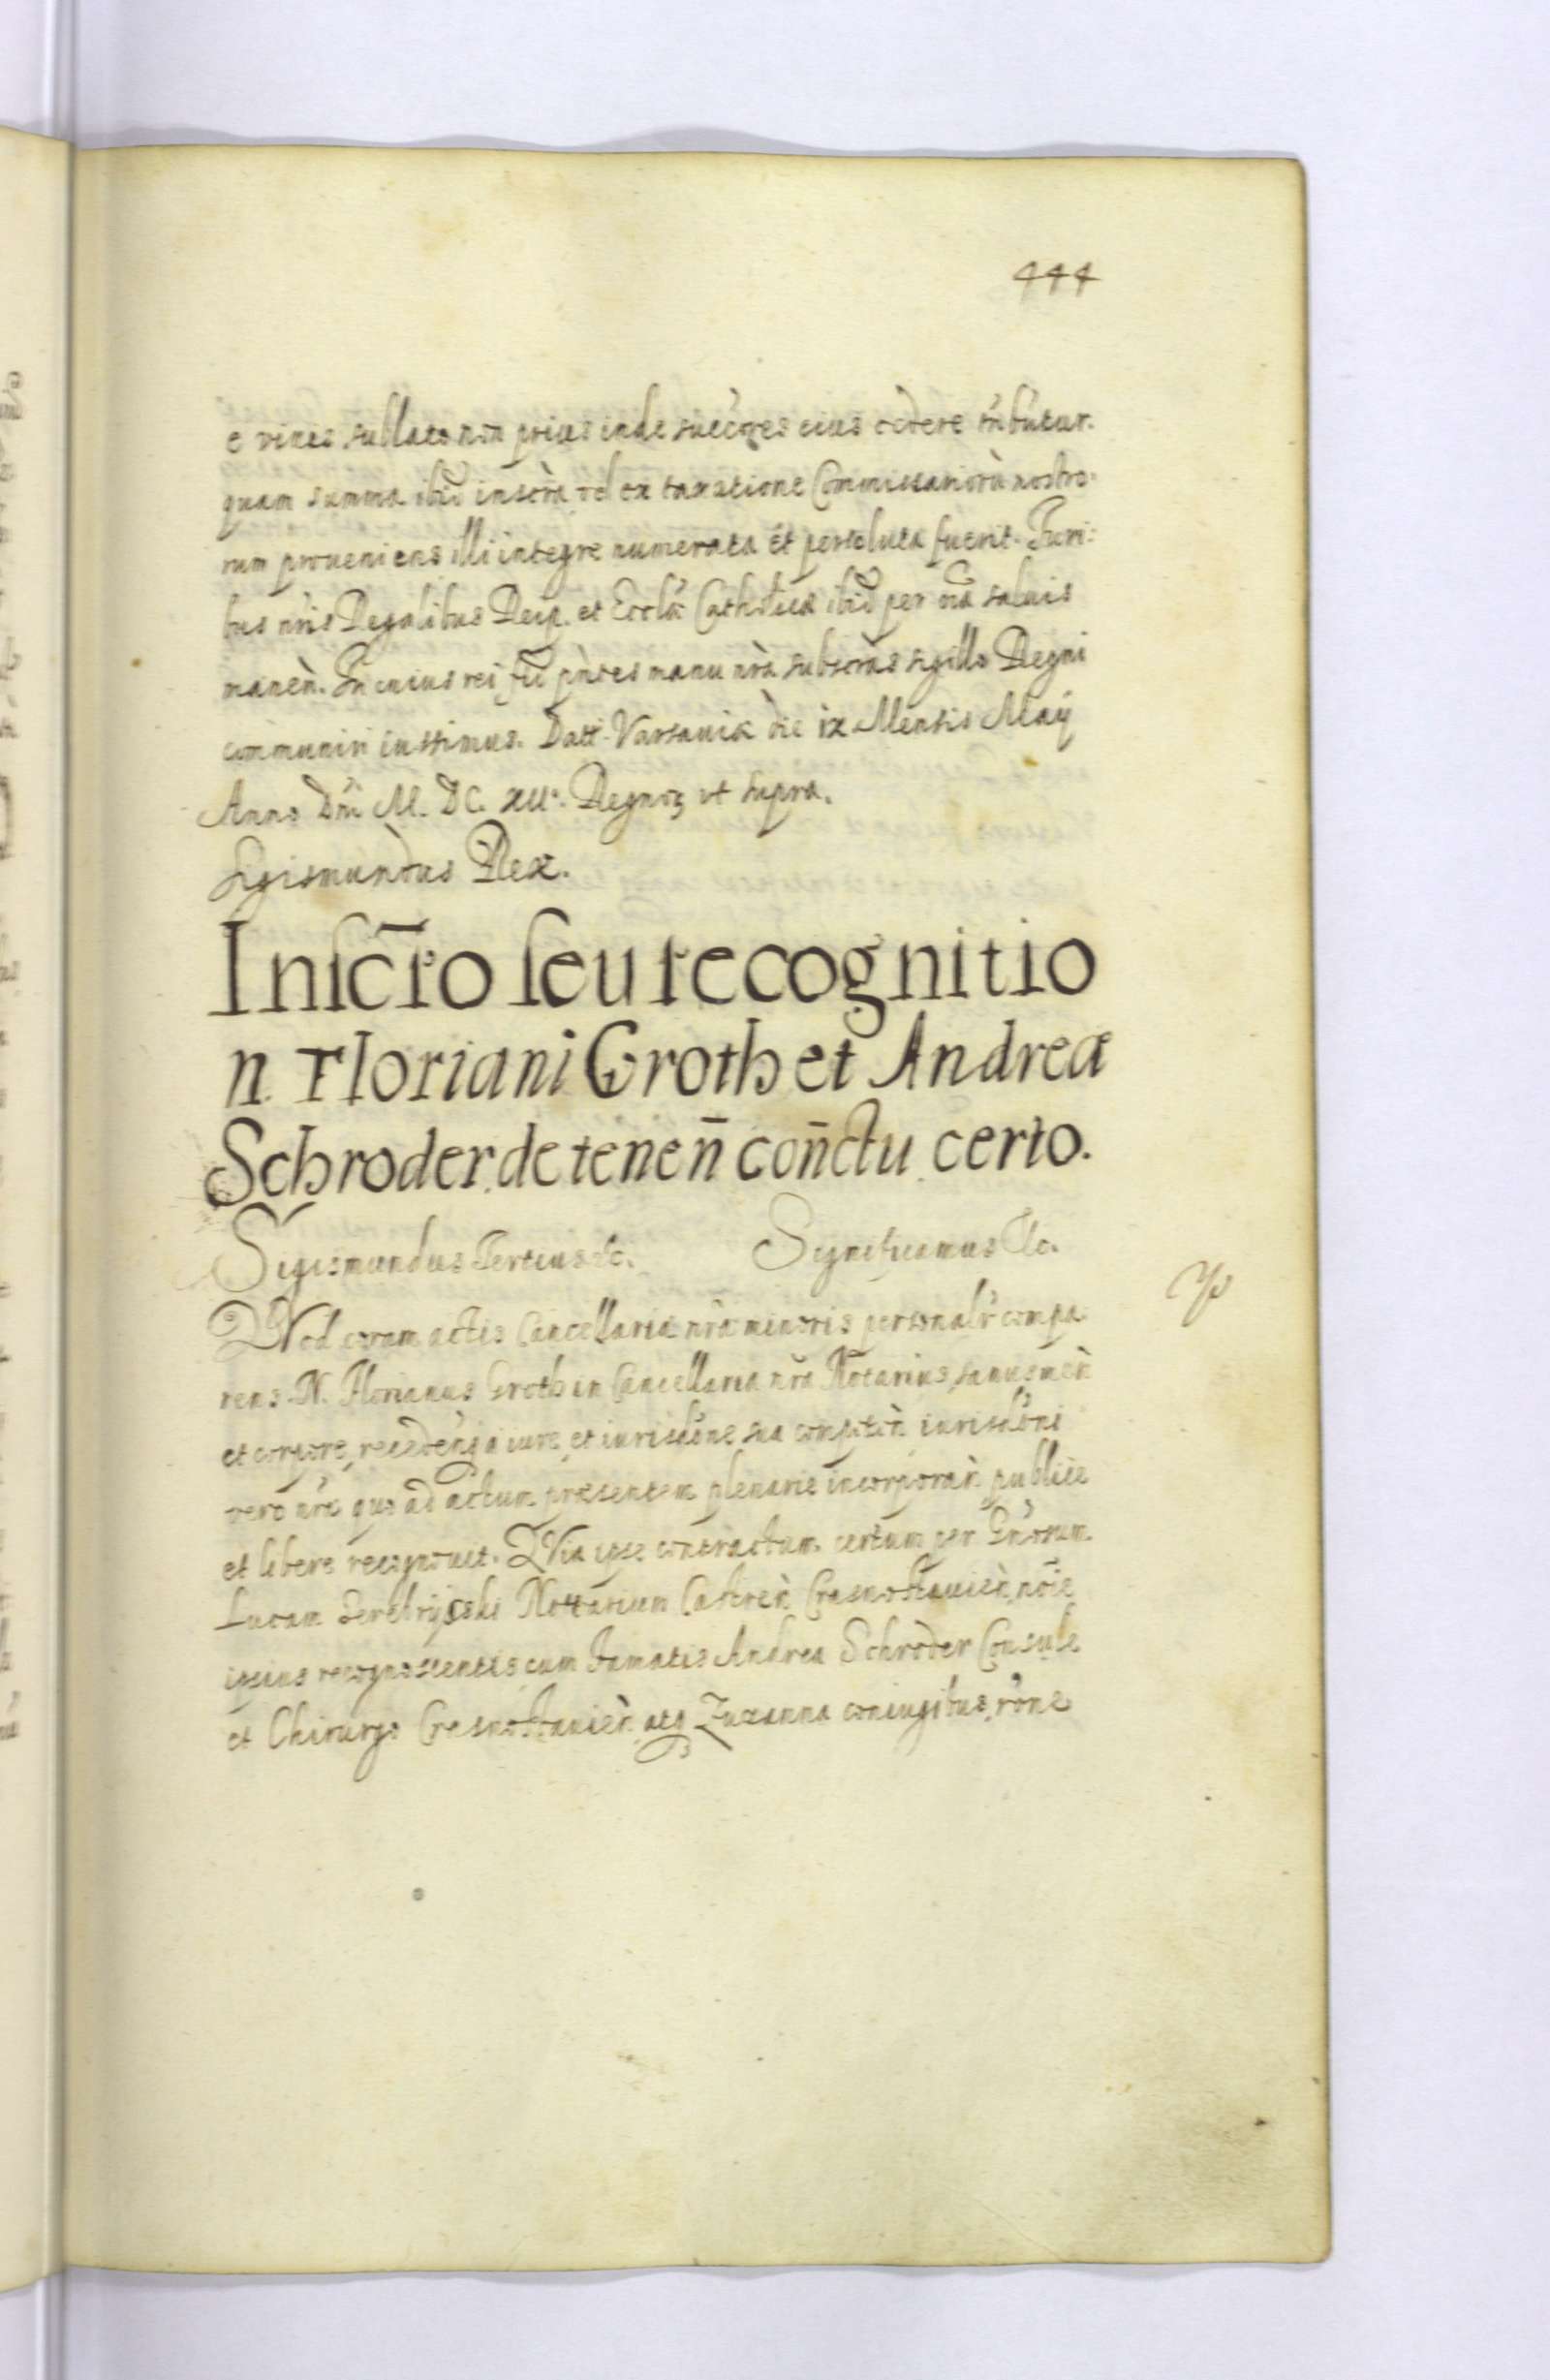 444
e viuis sublato non prius inde succores eius cedere tnbutur.
quam summa ibid inscra vel ex taxatione Commissarioru nostro
rum proueniens illi integre numerata et persoluta fuerit. Juri:
bus nris Regalibus Reip. et Eccla Catholica ibid per oia saluis
manen. In cuius rei fid pntes manu nra subscras sigillo Regni
communiri iussimus. Datt. Varsauia die ix Mensis Maij
Anno Dni M. DC. XII. Regnoꝝ vt supra.
Sigismundus Rex.
Inscro seu recognitio
n. Floriani Groth et Andrea
Schroder de tenen conctu certo.
Sigismundus Tertius etc. Significamus etc.
QVod coram actis Cancellaria nra minoris personalr compa
rens N. Florianus Groth in Cancellaria nra Notarius, sanus men
et corpore, recedens a iure et iurisdone sua competen iurisdoni
vero nra quo ad actum presentem plenarie incorporan publice
et libere recognouit. QVia ipse contractum certum per Gnosum
Lucam Serebryski Nottarium Castren Crasnostauien, noie
ipsius recognoscentis cum famatis Andrea Schroder Consule
et Chirurgo Crasnostauien atq Zuzanna coniugibus, rone